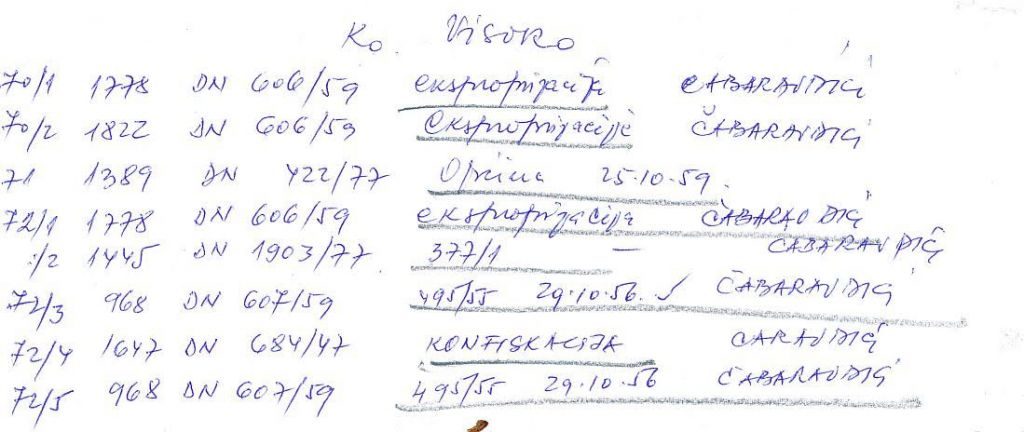 Ko. Visoko
70/1 1778 DN 606/59 eksproprijacija ČABARAVDIĆ
70/2 1822 DN 606/59 Ekspropriacije ČABARAVDIĆ
71 1389 DN 422/77 Općina 25.10.59.
72/1 1778 DN 606/59 ekspropriacija ČABARAVDIĆ
:/2 1445 DN 1903/77. 377/1 — ČABARAVDIĆ
72/3 968 DN 607/59 495/55 29.10.56. ✓ ČABARAVDIĆ
72/4 1647 DN 684/47 KONFISKACIJA ČARAVDIĆ
72/5 968 DN 607/59 495/55 29.10.56 ČABARAVDIĆ